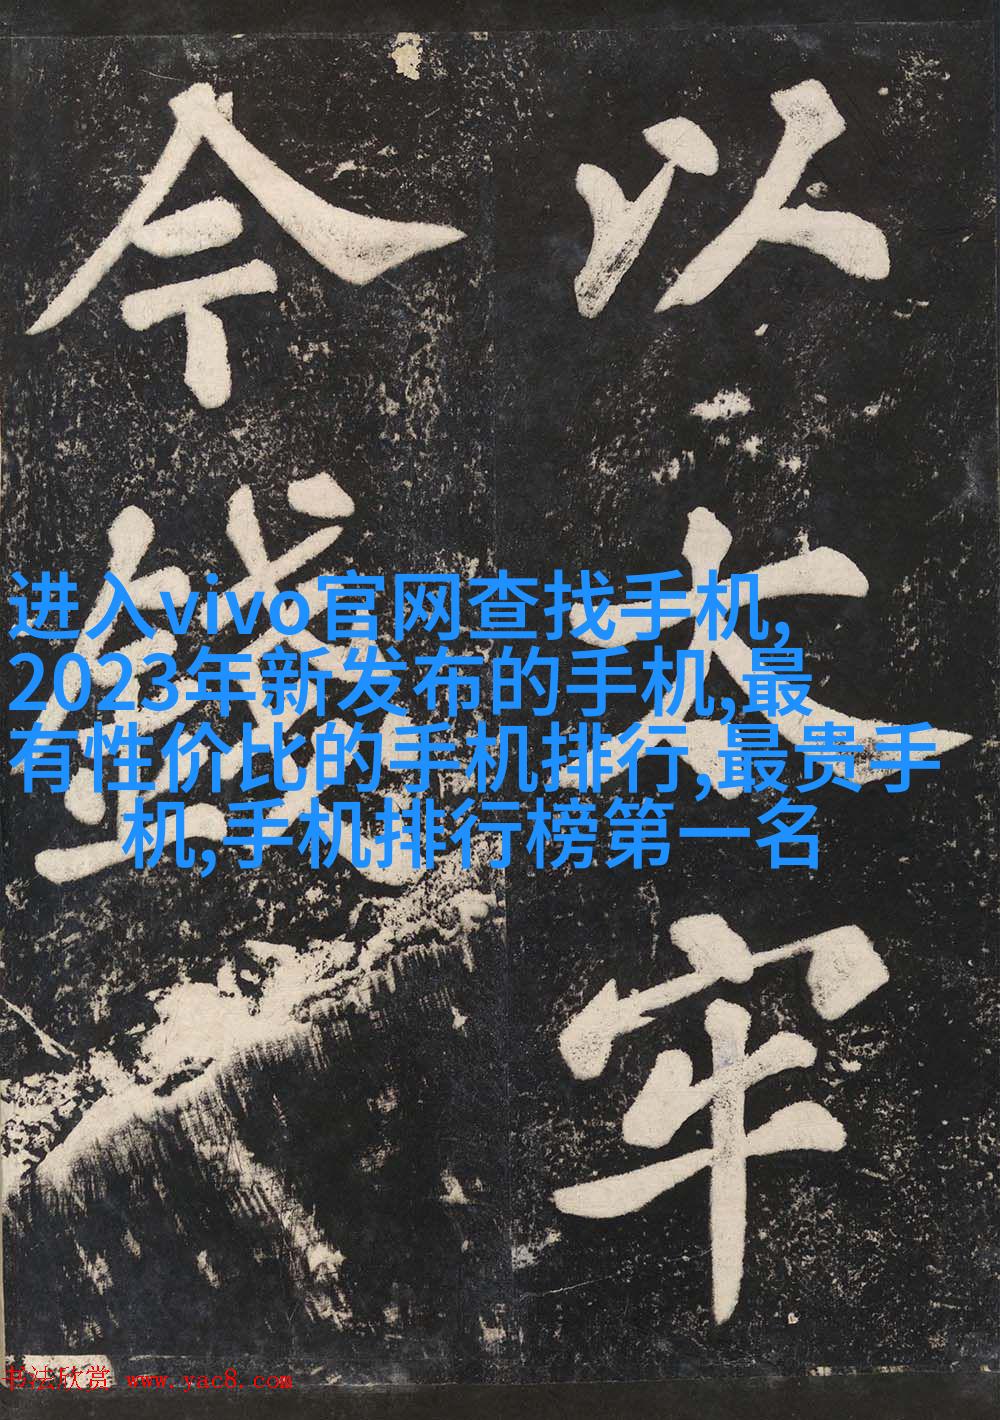 以太牢
今
进入vivo官网查找手机,
2023年新发布的手机,最
有性价比的手机排行,最贵手
机,手机排行榜第一名
书法欣赏 www.yac8.com